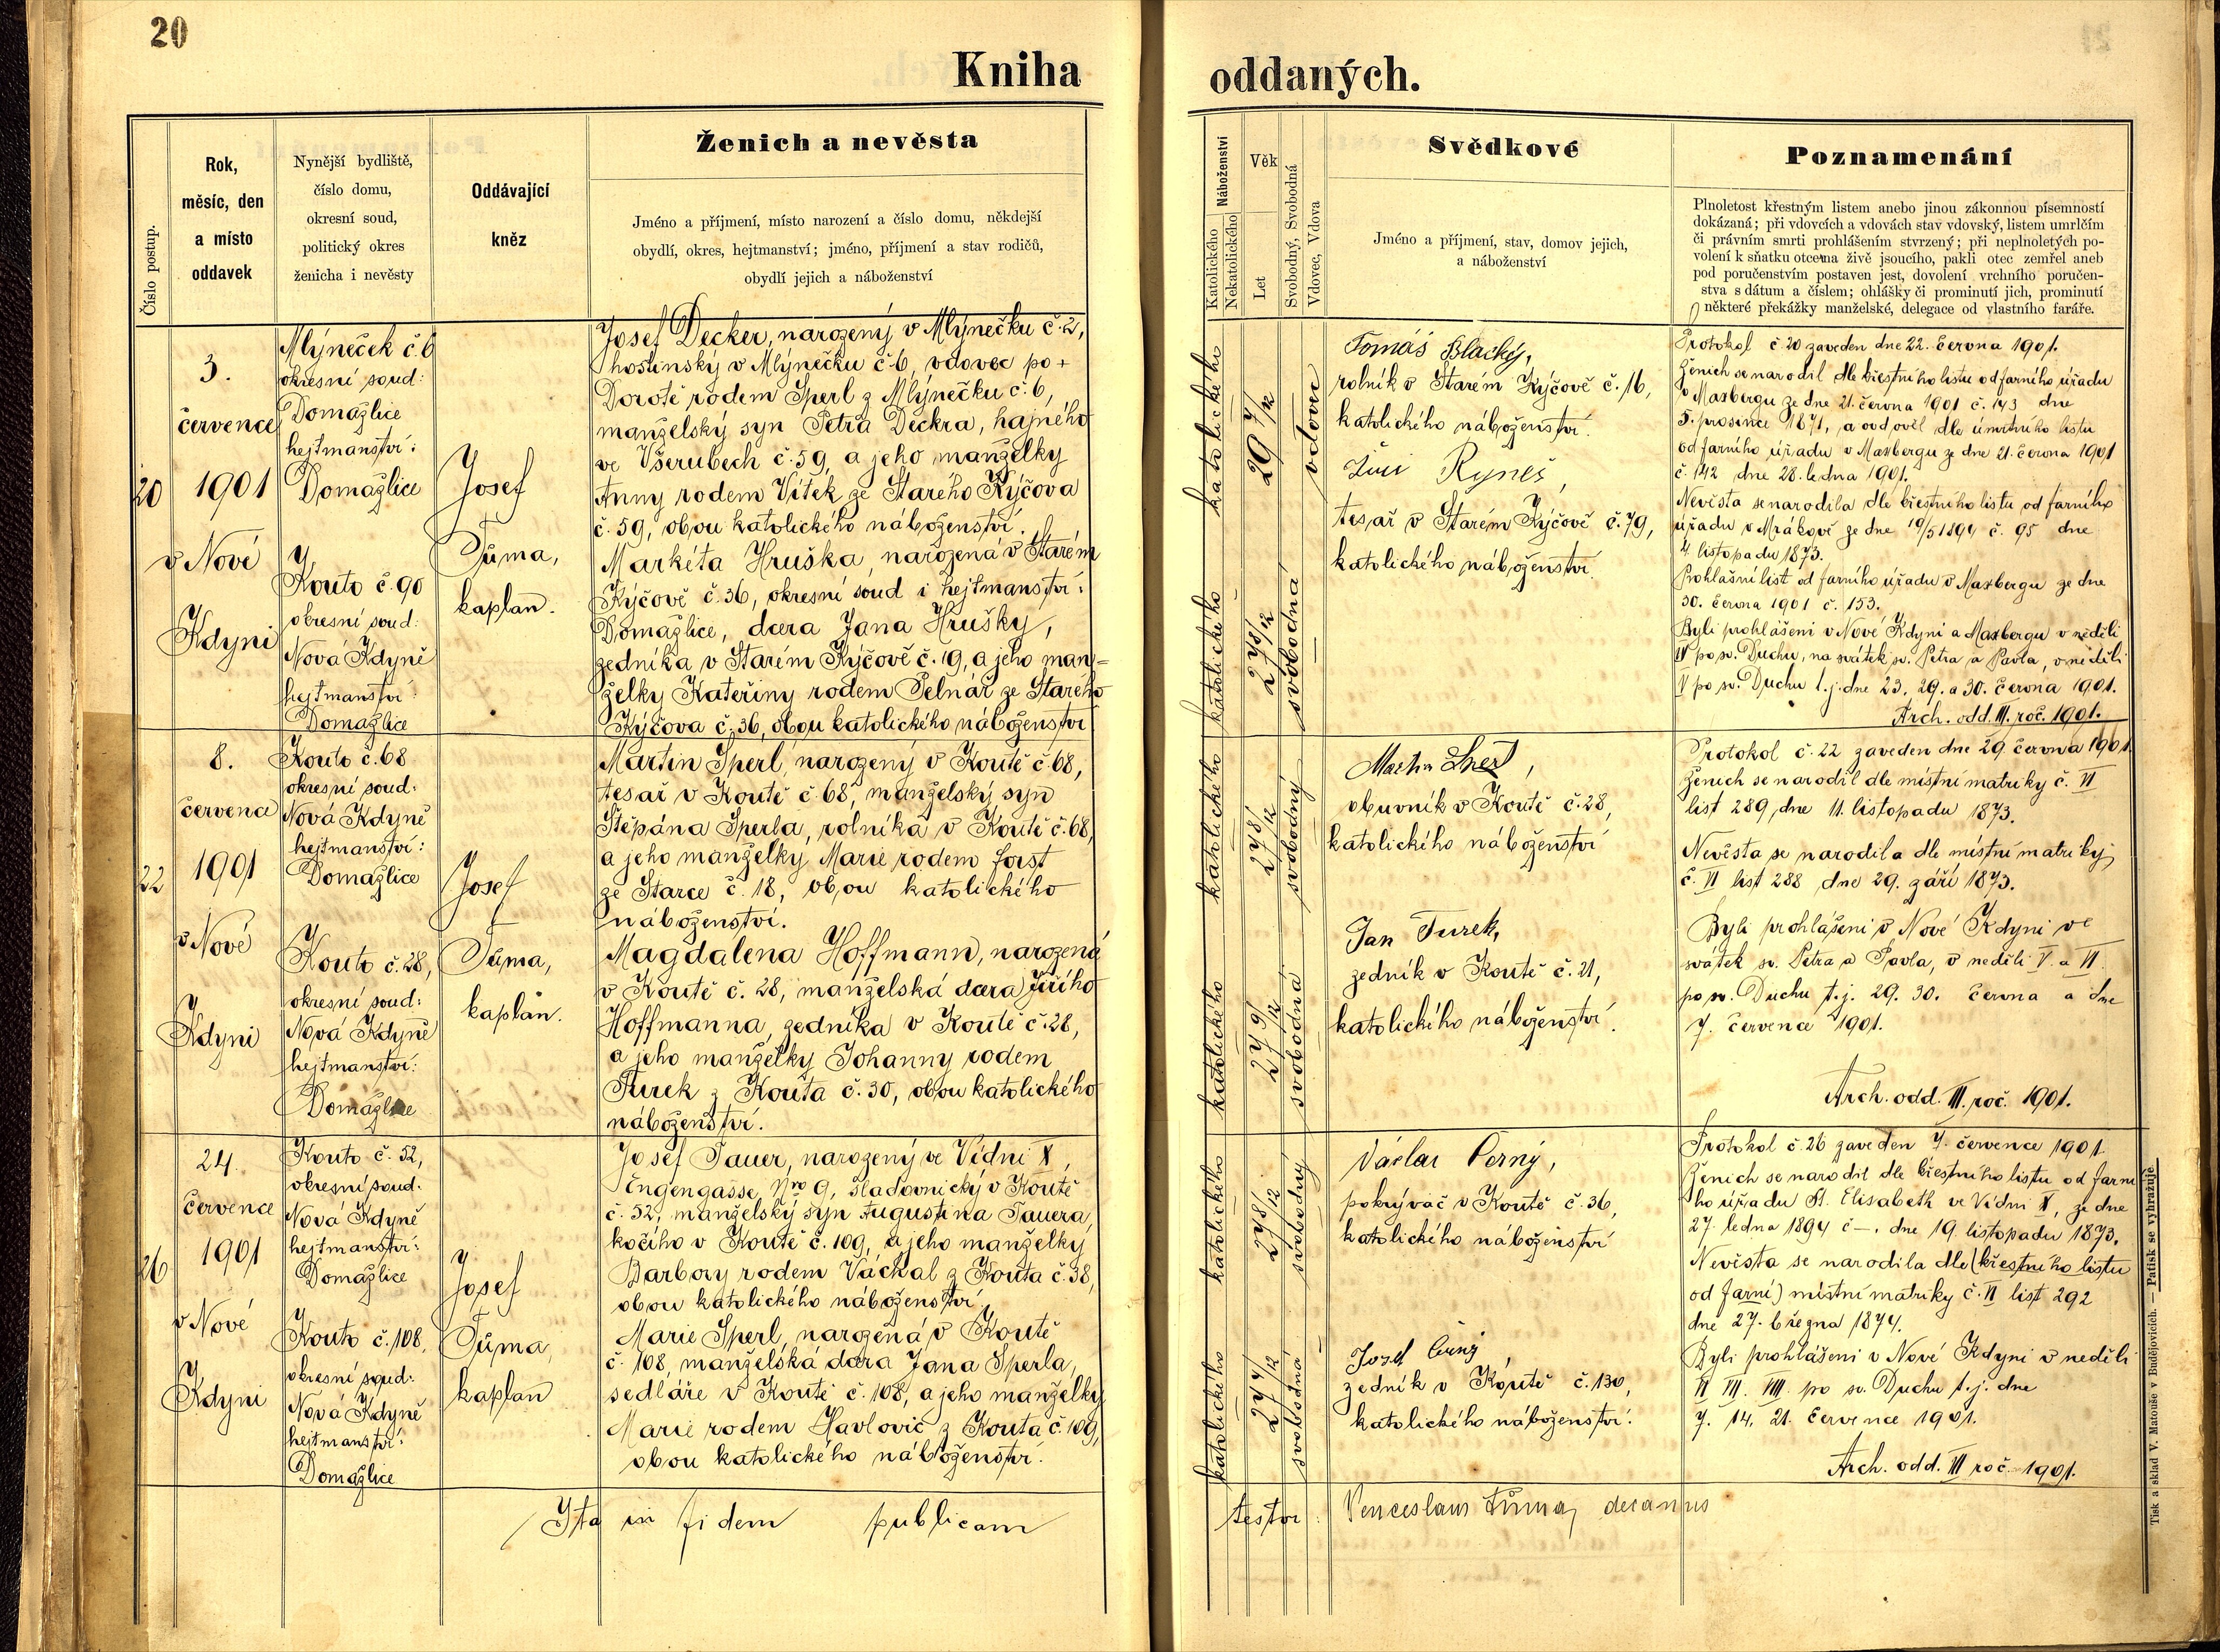 20
Kniha oddaných.
Číslo postup.
Rok,
měsíc, den
a místo
oddavek
Nynější bydliště,
číslo domu,
okresní soud,
politický okres
ženicha i nevěsty
Oddávající
kněz
Ženich a nevěsta
Jméno a příjmení, místo narození a číslo domu, někdejší
obydlí, okres, hejtmanství; jméno, příjmení a stav rodičů,
obydlí jejich a náboženství
Náboženství
Katolického
Nekatolického
Věk
Let
Svobodný, Svobodná
Vdovec, Vdova
Svědkové
Jméno a příjmení, stav, domov jejich,
a náboženství
Poznamenání
Plnoletost křestným listem anebo jinou zákonnou písemností
dokázaná; při vdovcích a vdovách stav vdovský, listem umrlčím
či právním smrti prohlášením stvrzený; při neplnoletých po-
volení k sňatku otcema živě jsoucího, pakli otec zemřel aneb
pod poručenstvím postaven jest, dovolení vrchního poručen-
stva s dátum a číslem; ohlášky či prominutí jich, prominutí
některé překážky manželské, delegace od vlastního faráře.
20
3.
července
1901
v Nové
Kdyni
Mlýneček č. 6
okresní soud:
Domažlice
hejtmanství:
Domažlice
Kouto č. 90
okresní soud:
Nová Kdyně
hejtmanství:
Domažlice
Josef
Tůma,
kaplan.
Josef Decker, narozený v Mlýnečku č. 2,
hostinský v Mlýnečku č. 6, vdovec po +
Dorotě rodem Sperl z Mlýnečku č. 6,
manželský syn Petra Deckra, hajného
ve Všerubech č. 59, a jeho manželky
Anny rodem Vítek ze Starého Kýčova
č. 59, obou katolického náboženství.
Markéta Hruška, narozená v Starém
Kýčově č. 36, okresní soud i hejtmanství:
Domažlice, dcera Jana Hrušky,
zedníka v Starém Kýčově č. 19, a jeho man-
želky Kateřiny rodem Pelnář ze Starého
Kýčova č. 36, obou katolického náboženství
katolického
29 7/12
vdovec
katolického
27 8/12
svobodná
Tomáš Blacký,
rolník v Starém Kýčově č. 16,
katolického náboženství.
Jiří Ryneš,
tesař v Starém Kýčově č. 79,
katolického náboženství.
Protokol č. 20 zaveden dne 22. června 1901.
Ženich se narodil dle křestního listu od farního úřadu
v Maxbergu ze dne 21. června 1901 č. 143 dne
5. prosince 1871, a ovdověl dle úmrtního listu
od farního úřadu v Maxbergu ze dne 21. června 1901
č. 142 dne 28. ledna 1901.
Nevěsta se narodila dle křestního listu od farního
úřadu v Mrákově ze dne 10/5 1894 č. 95 dne
4. listopadu 1873.
Prohlašní list od farního úřadu v Maxbergu ze dne
30. června 1901 č. 153.
Byli prohlášeni v Nové Kdyni a Maxbergu v neděli
IV po sv. Duchu, na svátek sv. Petra a Pavla, v neděli
V po sv. Duchu t. j. dne 23. 29. a 30. června 1901.
Arch. odd. III. roč. 1901.
22
8.
července
1901
v Nové
Kdyni
Kouto č. 68
okresní soud:
Nová Kdyně
hejtmanství:
Domažlice
Kouto č. 28,
okresní soud:
Nová Kdyně
hejtmanství:
Domažlice
Josef
Tůma,
kaplan.
Martin Sperl, narozený v Koutě č. 68,
tesař v Koutě č. 68, manželský syn
Štěpána Sperla, rolníka v Koutě č. 68,
a jeho manželky Marie rodem Forst
ze Starce č. 18, obou katolického
náboženství.
Magdalena Hoffmann, narozená
v Koutě č. 28, manželská dcera Jiřího
Hoffmanna, zedníka v Koutě č. 28,
a jeho manželky Johanny rodem
Turek z Kouta č. 30, obou katolického
náboženství.
katolického
27 8/12
svobodný
katolického
27 9/12
svobodná
Martin,
obuvník v Koutě č. 28,
katolického náboženství
Jan Turek,
zedník v Koutě č. 21,
katolického náboženství.
Protokol č. 22 zaveden dne 29. června 1901.
Ženich se narodil dle místní matriky č. VI
list 289, dne 11. listopadu 1873.
Nevěsta se narodila dle místní matriky
č. VI list 288 dne 29. září 1873.
Byli prohlášeni v Nové Kdyni ve
svátek sv. Petra a Pavla, v neděli V. a VI.
po sv. Duchu t. j. 29. 30. června a dne
7. července 1901.
Arch. odd. III. roč. 1901.
26
24.
července
1901
v Nové
Kdyni
Kouto č. 52,
okresní soud:
Nová Kdyně
hejtmanství:
Domažlice
Kouto č. 108,
okresní soud:
Nová Kdyně
hejtmanství:
Domažlice
Josef
Tůma,
kaplan
Josef Tauer, narozený ve Vídni X,
Engengasse, Nro 9, sladovnický v Koutě
č. 52, manželský syn Augustina Tauera,
kočího v Koutě č. 109, a jeho manželky
Barbory rodem Váchal z Kouta č. 38,
obou katolického náboženství
Marie Sperl, narozená v Koutě
č. 108, manželská dcera Jana Sperla,
sedláře v Koutě č. 108, a jeho manželky
Marie rodem Havlovič z Kouta č. 109,
obou katolického náboženství.
katolického
27 8/12
svobodný
katolického
27 4/12
svobodná
Václav Černý,
pokrývač v Koutě č. 36,
katolického náboženství
Josef Černý
zedník v Koutě č. 130,
katolického náboženství.
Protokol č. 26 zaveden 7. července 1901
Ženich se narodil dle křestního listu od farní
ho úřadu St. Elisabeth ve Vídni X, ze dne
27. ledna 1894 č —, dne 19. listopadu 1873.
Nevěsta se narodila dle (křestního listu
od farní) místní matriky č. VI list 292
dne 27. března 1874.
Byli prohlášeni v Nové Kdyni v neděli
VI VII. VIII. po sv. Duchu t. j. dne
7. 14. 21. července 1901.
Arch. odd. III roč. 1901.
Ita in fidem publicam
testor Venceslaus Tůma, decanus
Tisk a sklad V. Matouše v Budějovicích. — Patisk se vyhražuje.